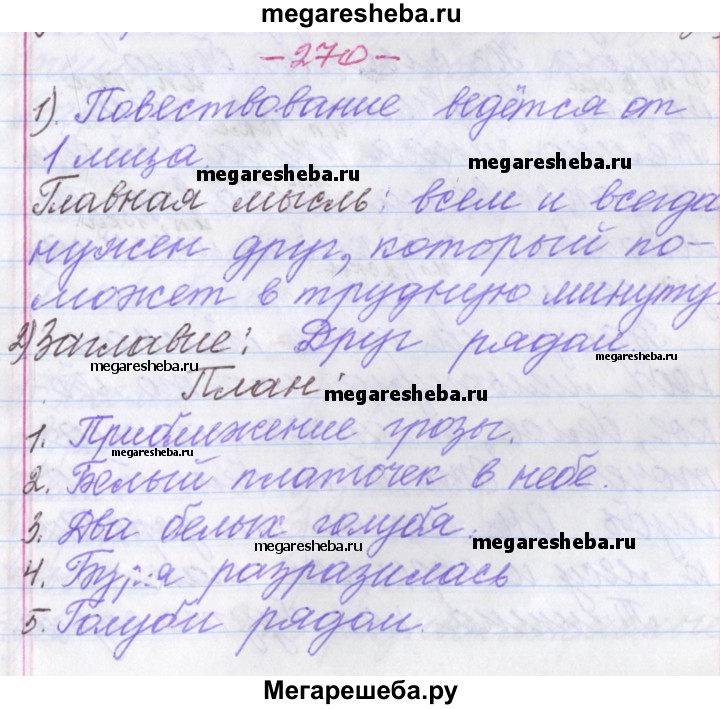 megaresheba.ru
- 270 -
1). Повествование ведётся от
1 лица.
megaresheba.ru
megaresheba.ru
Главная мысль: всем и всегда
нужен друг, который по-
может в трудную минуту
2) Заглавие: Друг рядом.
megaresheba.ru
megaresheba.ru
План:
megaresheba.ru
1. Приближение грозы.
megaresheba.ru
2. Белый платочек в небе.
3. Два белых голубя.
megaresheba.ru
megaresheba.ru
4. Буря разразилась
5. Голуби рядом.
Мегарешеба.ру